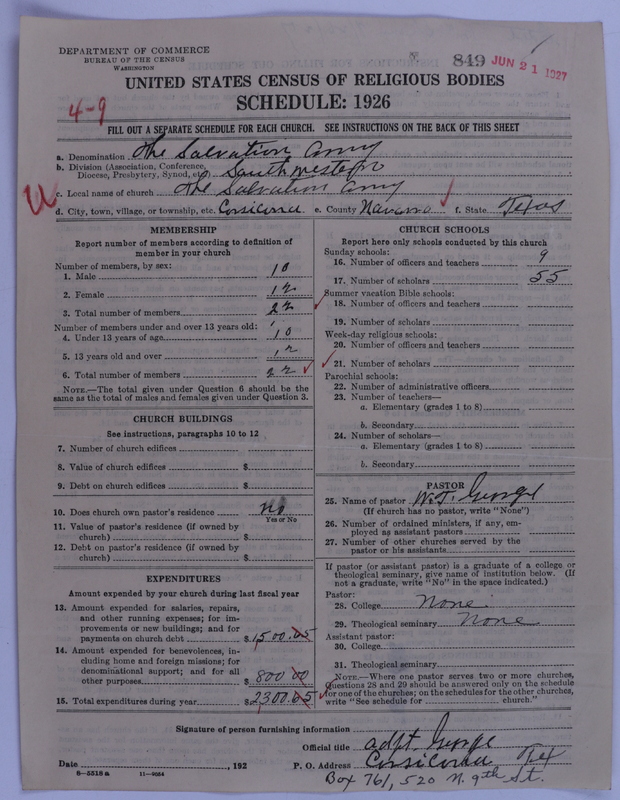 DEPARTMENT OF COMMERCE
BUREAU OF THE CENSUS
WASHINGTON
849 JUN 21 1927
UNITED STATES CENSUS OF RELIGIOUS BODIES
SCHEDULE: 1926
4-9
FILL OUT A SEPARATE SCHEDULE FOR EACH CHURCH. SEE INSTRUCTIONS ON THE BACK OF THIS SHEET
a. Denomination The Salvation Army
b. Division (Association, Conference, Diocese, Presbytery, Synod, etc.) Southwestern
c. Local name of church The Salvation Army
d. City, town, village, or township, etc. Corsicana e. County Navarro f. State Texas
MEMBERSHIP
Report number of members according to definition of
member in your church
Number of members, by sex:
1. Male 10
2. Female 12
3. Total number of members 22
Number of members under and over 13 years old:
4. Under 13 years of age 10
5. 13 years old and over 12
6. Total number of members 22
NOTE.—The total given under Question 6 should be the
same as the total of males and females given under Question 3.
CHURCH BUILDINGS
See instructions, paragraphs 10 to 12
7. Number of church edifices
8. Value of church edifices $
9. Debt on church edifices $
10. Does church own pastor's residence no
Yes or No
11. Value of pastor's residence (if owned by
church) $
12. Debt on pastor's residence (if owned by
church) $
EXPENDITURES
Amount expended by your church during last fiscal year
13. Amount expended for salaries, repairs,
and other running expenses; for im-
provements or new buildings; and for
payments on church debt $ 1500.65
14. Amount expended for benevolences, in-
cluding home and foreign missions; for
denominational support; and for all
other purposes $ 800 00
15. Total expenditures during year $ 2300.65
CHURCH SCHOOLS
Report here only schools conducted by this church
Sunday schools:
16. Number of officers and teachers 9
17. Number of scholars 55
Summer vacation Bible schools:
18. Number of officers and teachers
19. Number of scholars
Week-day religious schools:
20. Number of officers and teachers
21. Number of scholars
Parochial schools:
22. Number of administrative officers
23. Number of teachers—
a. Elementary (grades 1 to 8)
b. Secondary
24. Number of scholars—
a. Elementary (grades 1 to 8)
b. Secondary
PASTOR
25. Name of pastor W. J. George
(If church has no pastor, write "None")
26. Number of ordained ministers, if any, em-
ployed as assistant pastors
27. Number of other churches served by the
pastor or his assistants
If pastor (or assistant pastor) is a graduate of a college or
theological seminary, give name of institution below. (If
not a graduate, write "No" in the space indicated.)
Pastor:
28. College None
29. Theological seminary None
Assistant pastor:
30. College
31. Theological seminary
NOTE.—Where one pastor serves two or more churches,
Questions 28 and 29 should be answered only on the schedule
for one of the churches; on the schedules for the other churches,
write "See schedule for church."
Signature of person furnishing information
Official title adjt. George
Date , 192 P. O. Address Corsicana Tex
8-5518a 11-9054
Box 761, 520 N. 9th St.